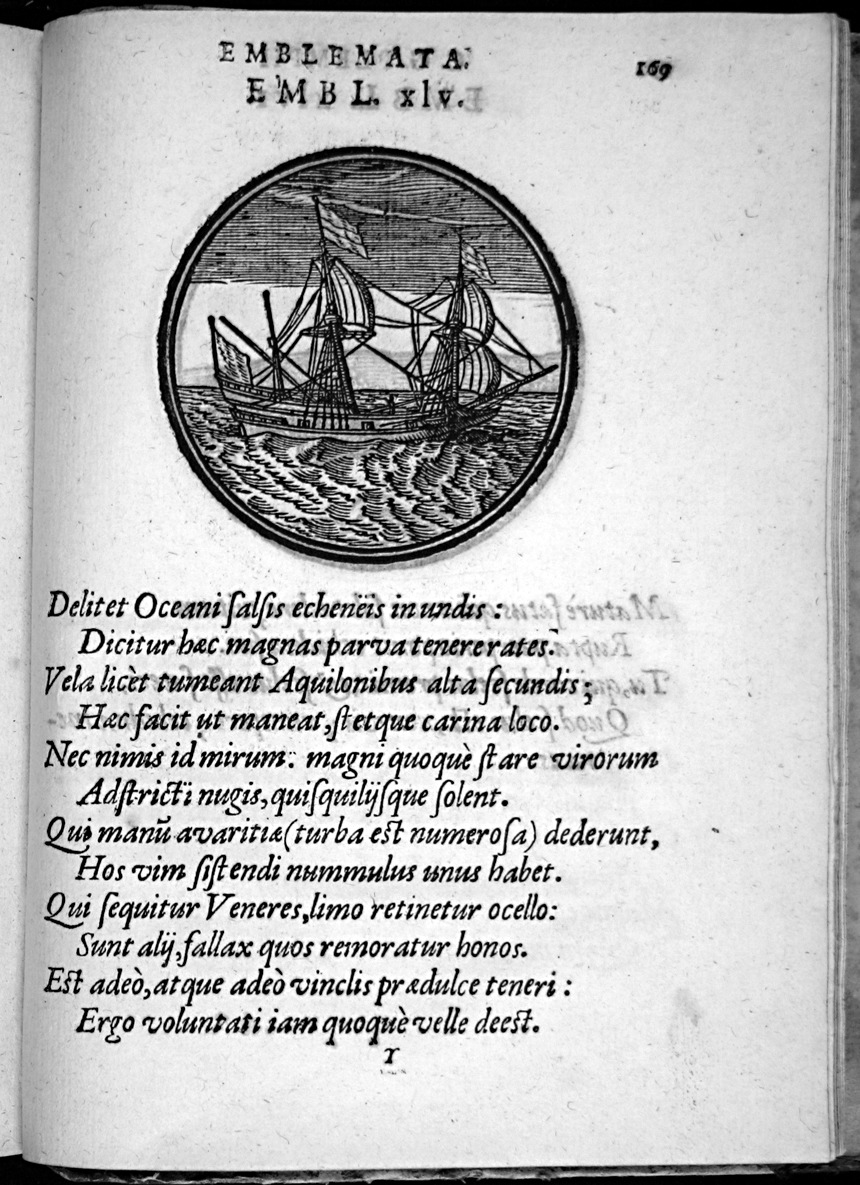 EMBLEMATA.
169
EMBL. xlv.
Delitet Oceani ſalſis echeneis in undis:
Dicitur hæc magnas parva tenere rates.
Vela licèt tumeant Aquilonibus alta ſecundis;
Hæc facit ut maneat, ſtetque carina loco.
Nec nimis id mirum: magni quoquè ſtare virorum
Adſtricti nugis, quiſquilijſque ſolent.
Qui manū avaritiæ (turba eſt numeroſa) dederunt,
Hos vim ſiſtendi nummulus unus habet.
Qui ſequitur Veneres, limo retinetur ocello:
Sunt alij, fallax quos remoratur honos.
Eſt adeò, atque adeò vinclis prædulce teneri:
Ergo voluntati iam quoquè velle deeſt.